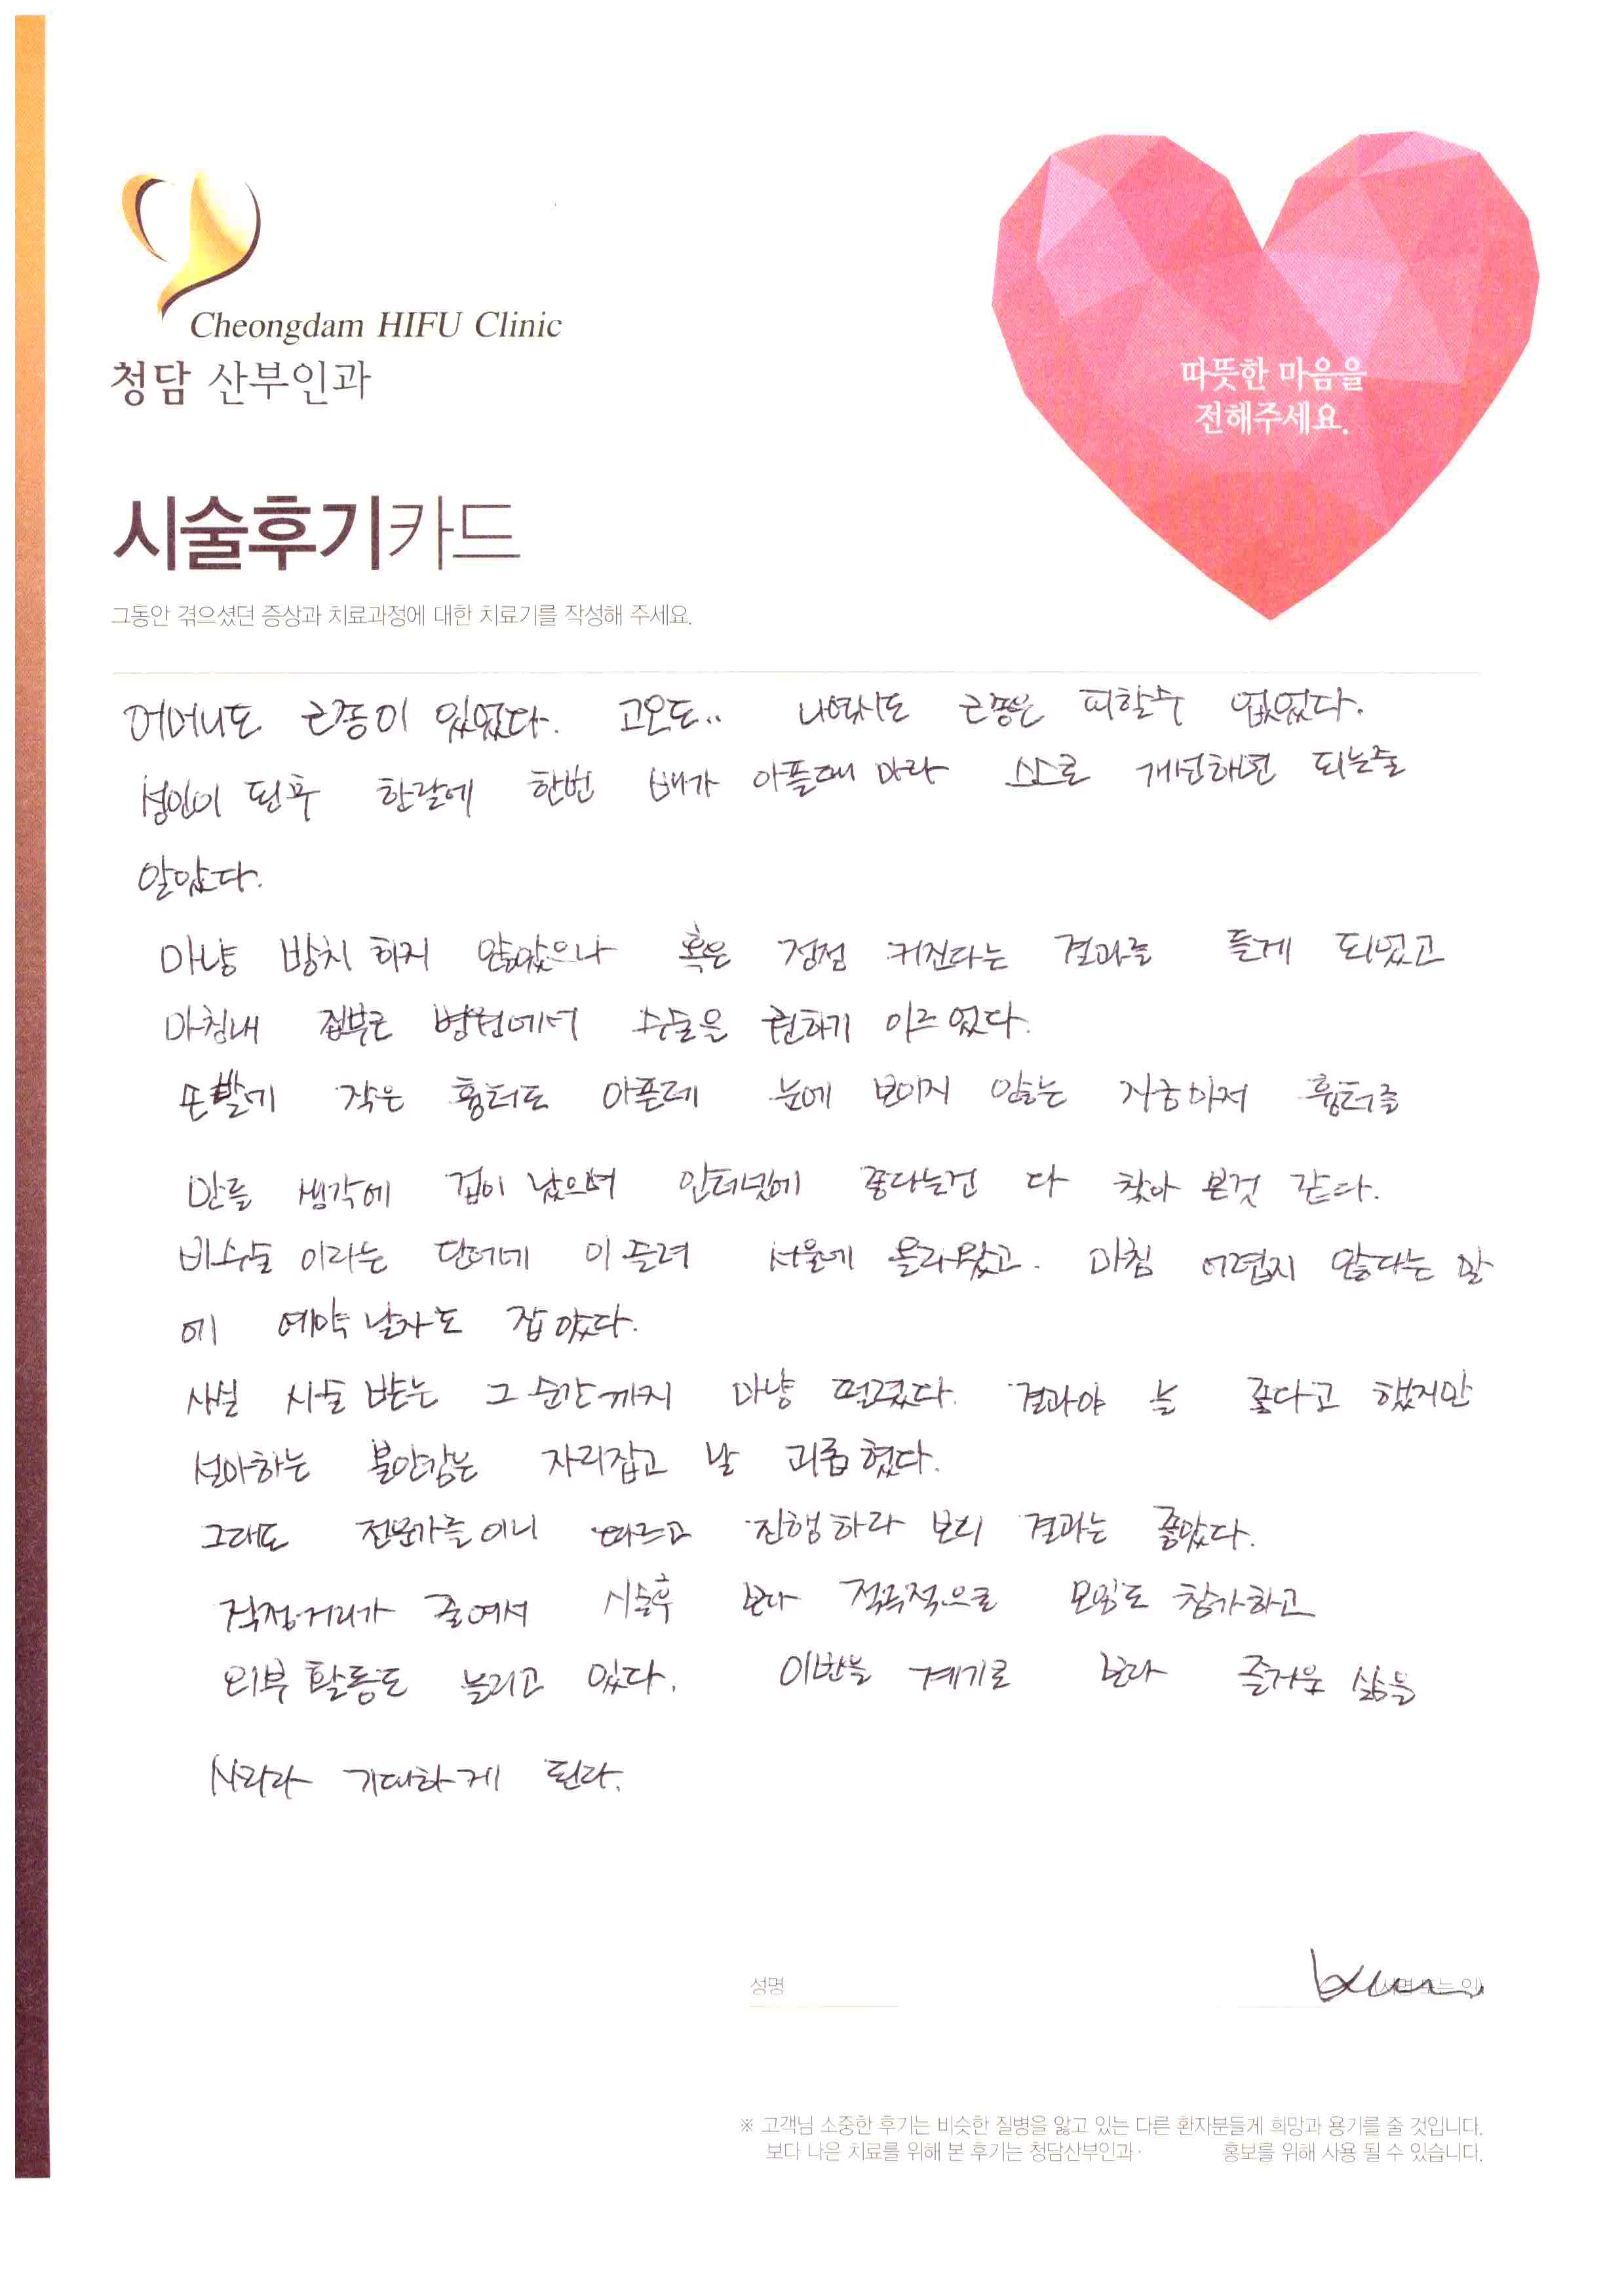 Cheongdam HIFU Clinic
청담 산부인과
따뜻한 마음을
전해주세요.
시술후기카드
그동안 겪으셨던 증상과 치료과정에 대한 치료기를 작성해 주세요.
어머니도 근종이 있었다. 고모도.. 나역시도 근종은 피할수 없었다.
성인이 된후 한달에 한번 배가 아플때 마다 스스로 개선하면 되는줄
알았다.
마냥 방치 하지 않았으나 혹은 점점 커진다는 결과를 듣게 되었고
마침내 집부근 병원에서 수술을 권하기 이르었다.
손발에 작은 흉터도 아픈데 눈에 보이지 않는 자궁마저 흉터를
만들 생각에 겁이 났으며 인터넷에 좋다는건 다 찾아 본것 같다.
비수술 이라는 단어에 이끌려 서울에 올라왔고. 마침 어렵지 않다는 말
에 예약 날자도 잡았다.
사실 시술 받는 그 순간 까지 마냥 떨렸다. 결과야 늘 좋다고 했지만
설마하는 불안감은 자리잡고 날 괴롭혔다.
그래도 전문가들이니 따르고 진행하다 보니 결과는 좋았다.
걱정거리가 줄여서 시술후 보다 적극적으로 모임도 참가하고
외부 활동도 늘리고 있다. 이번을 계기로 보다 즐거운 삶을
살리라 기대하게 된다.
성명
※ 고객님 소중한 후기는 비슷한 질병을 앓고 있는 다른 환자분들게 희망과 용기를 줄 것입니다.
보다 나은 치료를 위해 본 후기는 청담산부인과· 홍보를 위해 사용 될 수 있습니다.